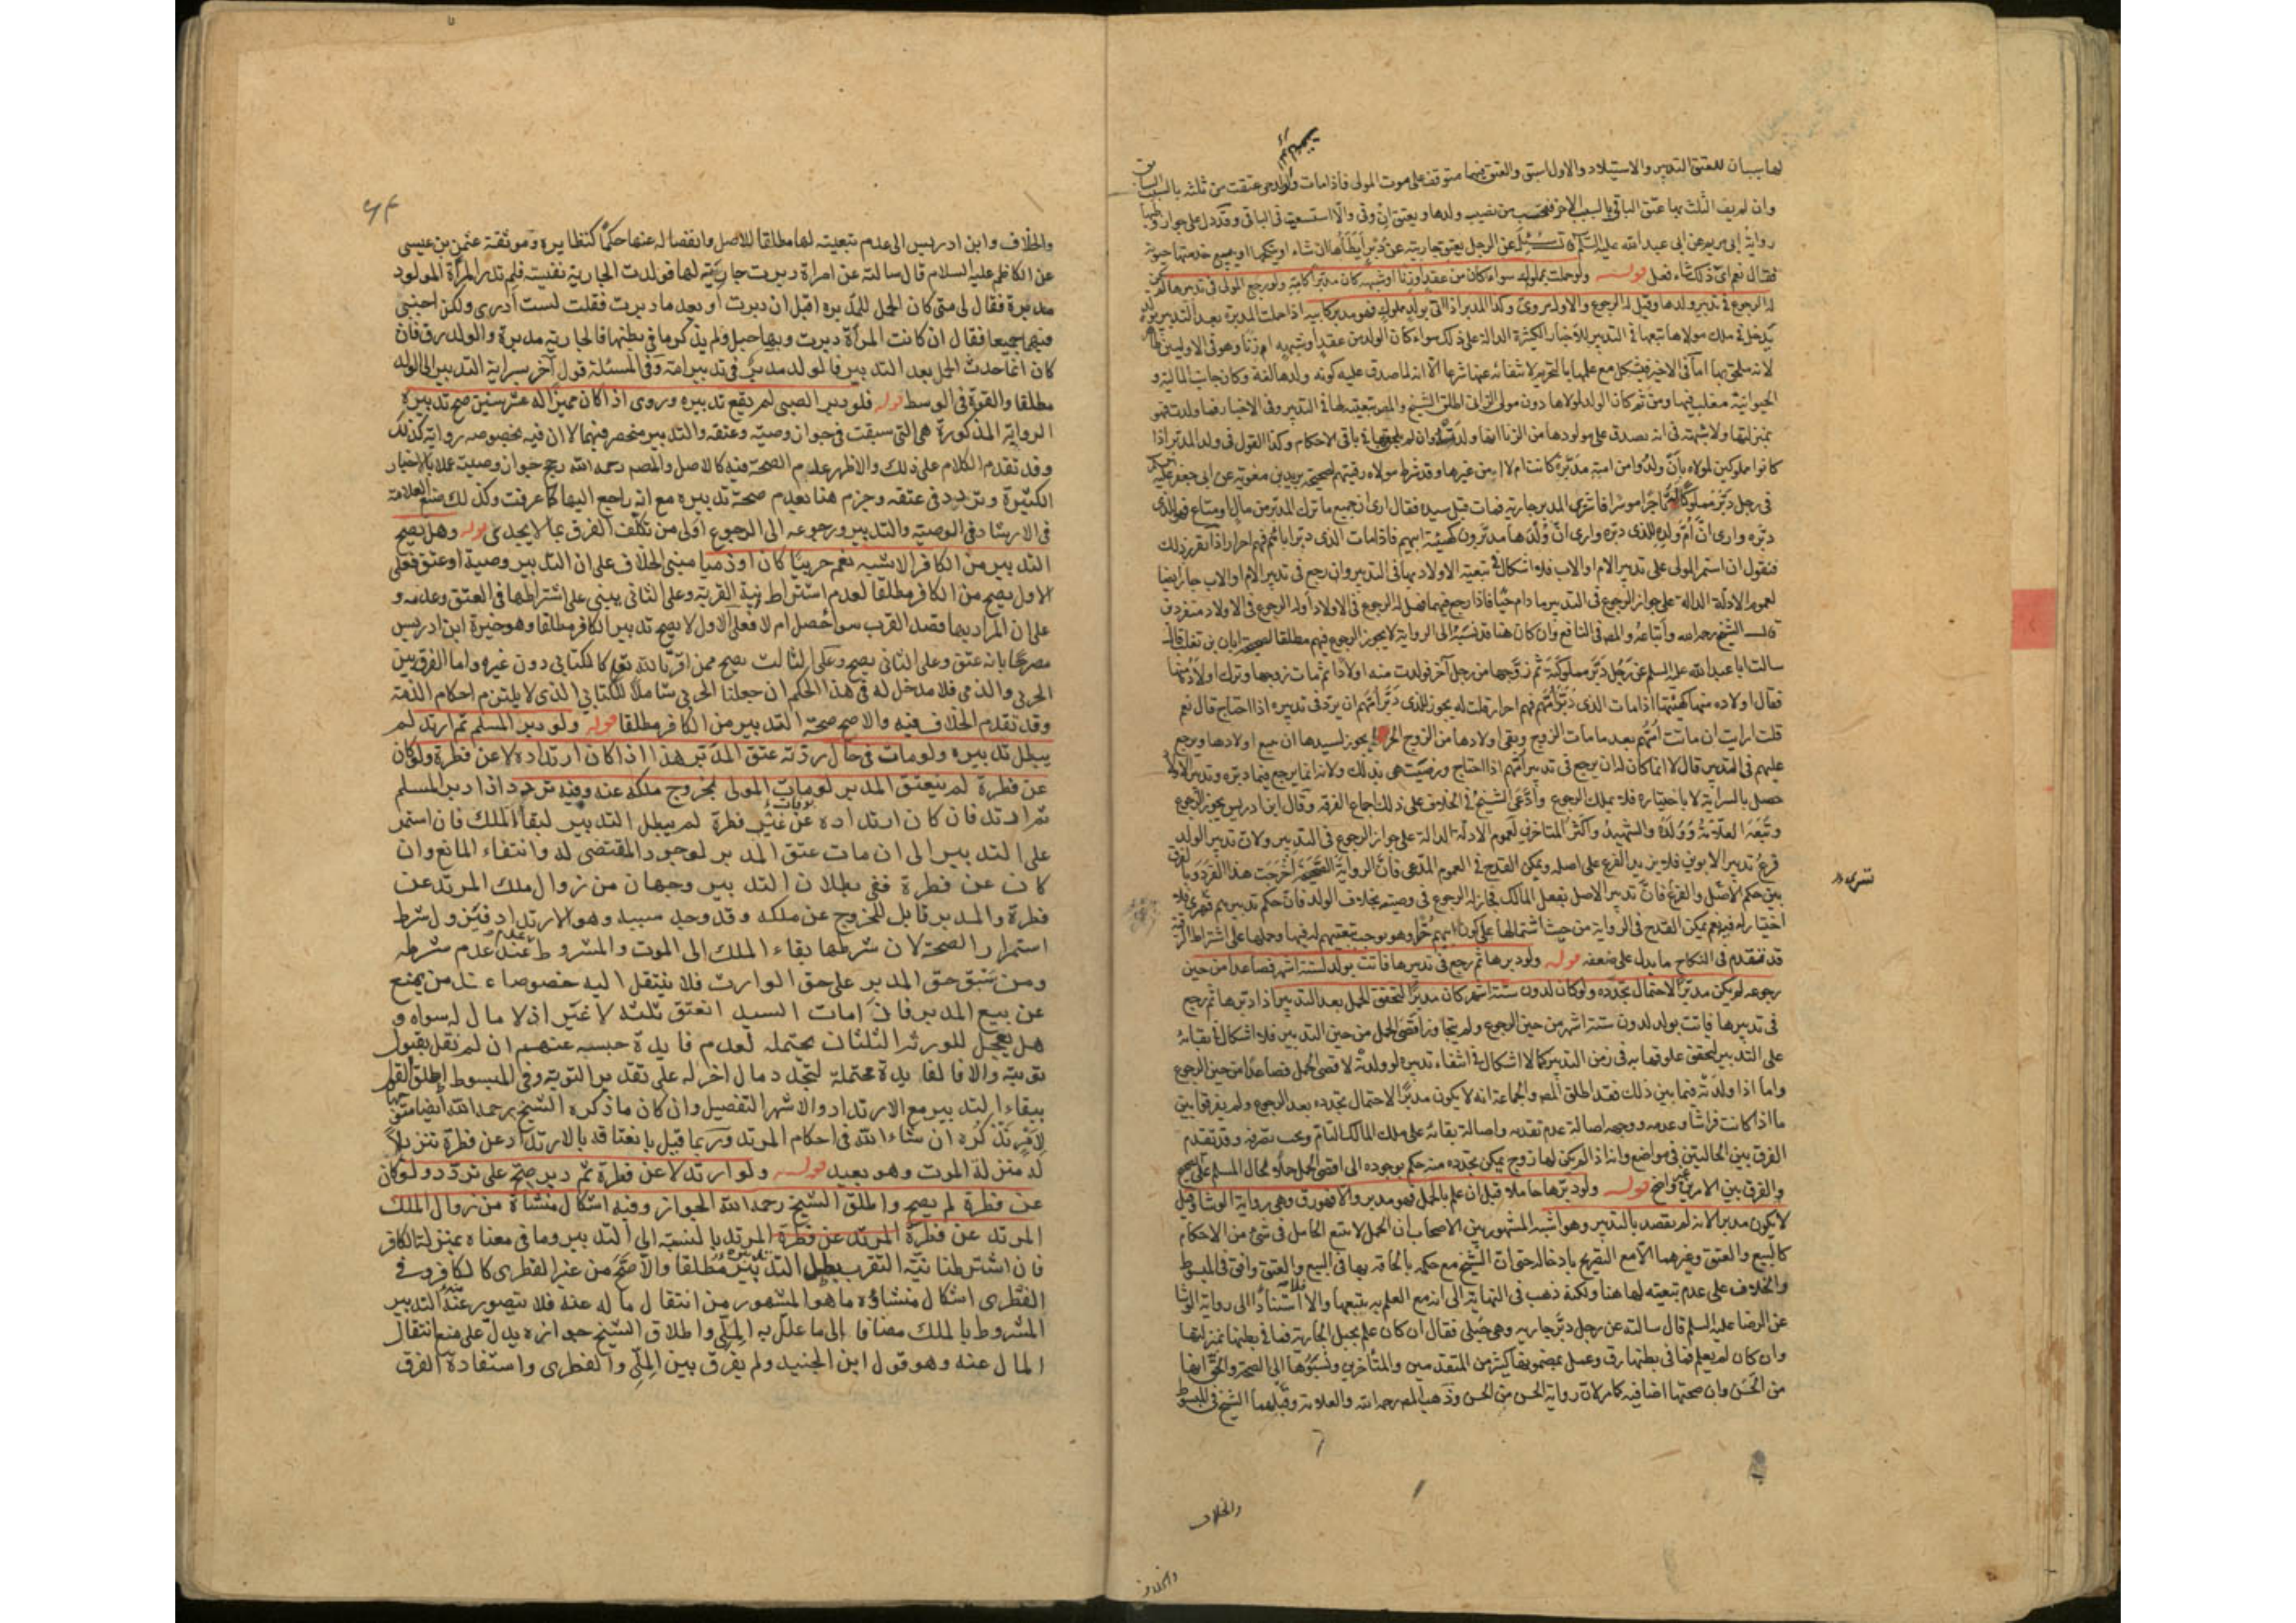 لها سببان للعتق التدبير والاستيلاد والاول اسبق والعتق بهما متوقف على موت المولى فاذا مات عتقت من ثلثه بالسبب السابق
وان لم يف الثلث بها عتق الباقي بالسبب الاخر فتحتسب من نصيب ولدها ويعتق ان وفى والا استسعيت في الباقي وقد دل على جواز وطيها
رواية ابي مريم عن ابي عبد الله عليه السلم قال سئل عن الرجل يعتق جاريته عن دبر ايطأها ان شاء او ينكحها او يبيع خدمتها حيوته
فقال نعم اى ذلك شاء فعل قوله ولو حملت بمملوك سواء كان من عقد او زنا او شبهة كان مدبرا كامه ولو رجع المولى في تدبيرها لم يكن
له الرجوع في تدبير ولدها وقيل له الرجوع والاول مروى وكذا المدبر اذا اتى بولد مملوك فهو مدبر كابيه اذا حملت المدبرة بعد التدبير بولد
يدخل في ملك مولاها تبعها في التدبير للاخبار الكثيرة الدالة على ذلك سواء كان الولد من عقد او شبهه ام زنا وهو في الاولين ظاهر
لانه ملحق بها اما في الاخير فيشكل مع علمها بالتحريم لانتفائه عنها شرعا الا انه لما صدق عليه كونه ولدها لغة وكان جانب المالية و
الحيوانية مغلب فيها ومن ثم كان الولد لمولاها دون مولى الزاني اطلق الشيخ والمصنف تبعيته لها في التدبير وفي الاخبار فما ولدت فهو
بمنزلتها ولا شبهة في انه يصدق على مولودها من الزنا انها ولدته وان لم يلحق بها في باقي الاحكام وكذا القول في ولد المدبر اذا
كانوا مملوكين لمولاه بان ولدوا من امته مدبرة كانت ام لا او من غيرها وقد شرط مولاه رقيتهم لصحيحة بريد بن معوية عن ابي جعفر عليه السلم
في رجل دبر مملوكا له تاجرا موسرا فاشترى المدبر جارية فمات قبل سيده فقال ارى ان جميع ما ترك المدبر من مال او متاع فهو للذى
دبره وارى ان ام ولده للذى دبره وارى ان ولدها مدبرون كهيئة ابيهم فاذا مات الذى دبر اباهم فهم احرار اذا تقرر ذلك
فنقول ان استمر المولى على تدبير الام او الاب فلا اشكال في تبعية الاولاد بهما في التدبير وان رجع في تدبير الام او الاب جاز ايضا
لعموم الادلة الدالة على جواز الرجوع في التدبير ما دام حيا فاذا رجع فيهما فهل له الرجوع في الاولاد او له الرجوع في الاولاد منفردة
قال الشيخ رحمه الله واتباعه والمصنف في النافع وان كان هنا قد نسبه الى الرواية لا يجوز الرجوع فيهم مطلقا لصحيحة ابان بن تغلب قال
سالت ابا عبد الله عليه السلم عن رجل دبر مملوكته ثم زوجها من رجل آخر فولدت منه اولادا ثم مات زوجها وترك اولاده منها
فقال اولاده منها كهيئتها اذا مات الذى دبر امهم فهم احرار قلت له يجوز للذى دبر امهم ان يرد في تدبيره اذا احتاج قال نعم
قلت ارايت ان ماتت امهم بعد ما مات الزوج وبقي اولادها من الزوج الحر ايجوز لسيدها ان يبيع اولادها ويرجع
عليهم في التدبير قال لا انما كان له ان يرجع في تدبير امهم اذا احتاج ورضيت هي بذلك ولانه انما يرجع فيما دبره وتدبير الاولاد
حصل بالسراية لا باختياره فلا يملك الرجوع وادعى الشيخ في الخلاف على ذلك اجماع الفرقة وقال ابن ادريس يجوز الرجوع
وتبعه العلامة وولده والشهيد واكثر المتاخرين لعموم الادلة الدالة على جواز الرجوع في التدبير ولان تدبير الولد
فرع تدبير الابوين فلا يزيد الفرع على اصله ويمكن القدح في العموم المدعى فان الرواية الصحيحة اخرجت هذا الفرد وبالفرق
بين حكم الاصل والفرع فان تدبير الاصل بفعل المالك فجاز له الرجوع في وصيته بخلاف الولد فان حكم تدبيرهم قهرى فلا
اختيار له فيه نعم يمكن القدح في الرواية من حيث اشتمالها على كون ابيهم حرا وهو يوجب تبعيتهم له فيها وحملها على اشتراط الرقية
قد تقدم في النكاح ما يدل على ضعفه قوله ولو دبرها ثم رجع في تدبيرها فاتت بولد لستة اشهر فصاعدا من حين
رجوعه لم يكن مدبرا لاحتمال تجدده ولو كان لدون ستة اشهر كان مدبرا لتحقق الحمل بعد التدبير اذا دبرها ثم رجع
في تدبيرها فاتت بولد لدون ستة اشهر من حين الرجوع ولم يتجاوز اقصى الحمل من حين التدبير فلا اشكال في بقائه
على التدبير لتحقق علوقها به في زمن التدبير كما لا اشكال في انتفاء تدبيره لو ولدته لاقصى الحمل فصاعدا من حين الرجوع
واما اذا ولدته فيما بين ذلك فقد اطلق المصنف والجماعة انه لا يكون مدبرا لاحتمال تجدده بعد الرجوع ولم يفرقوا بين
ما اذا كانت فراشا وعدمه ووجهه اصالة عدم تقدمه واصالة بقائه على ملك المالك التام وبحب تصرفه وقد تقدم
الفرق بين الحالتين في مواضع وانه اذا لم يكن لها زوج يمكن تجدده منه حكم بوجوده الى اقصى الحمل حملا لحال المسلم على الصحيح
والفرق بين الامرين غير واضح قوله ولو دبرها حاملا قيل ان علم بالحمل فهو مدبر والا فهو رق وهي رواية الوشا وقيل
لا يكون مدبرا لانه لم يقصد بالتدبير وهو اشبه المشهور بين الاصحاب ان الحمل لا يتبع الحامل في شئ من الاحكام
كالبيع والعتق وغيرهما الا مع التصريح بادخاله حتى ان الشيخ مع حكمه بالحاقه بها في البيع والعتق وافق في المبسوط
والخلاف على عدم تبعيته لها هنا ولكنه ذهب في النهاية الى انه مع العلم به يتبعها والا فلا استنادا الى رواية الوشا
عن الرضا عليه السلم قال سالته عن رجل دبر جاريه وهي حبلى فقال ان كان علم بحبل الجارية فما في بطنها بمنزلتها
وان كان لم يعلم فما في بطنها رق وعمل بمضمونها كثير من المتقدمين والمتاخرين ونسبوها الى الصحة والحق انها
من الحسن وان صحتها اضافيه كما مر لان رواية الحسن من الحسن وذهب المصنف رحمه الله والعلامة وقبلهما الشيخ في المبسوط
والخلاف
والخلاف وابن ادريس الى عدم تبعيته لها مطلقا للاصل وانفصاله عنها حكما كنظايره وموثقة عثمن بن عيسى
عن الكاظم عليه السلام قال سالته عن امراة دبرت جارية لها فولدت الجارية نفيسة فلم تدر المرأة المولود
مدبرة فقال لى متى كان الحمل للمدبرة اقبل ان دبرت او بعد ما دبرت فقلت لست أدرى ولكن اجبني
فيهما جميعا فقال ان كانت المرأة دبرت وبها حبل ولم يذكر ما في بطنها فالجارية مدبرة والولد رق فان
كان انما حدث الحمل بعد التدبير فالولد مدبر في تدبير امه وفي المسئلة قول آخر بسراية التدبير الى الولد
مطلقا والقوة في الوسط قوله فلو دبر الصبى لم يقع تدبيره وروى اذا كان مميزا له عشر سنين صح تدبيره
الرواية المذكورة هي التي سبقت في جواز وصيته وعتقه والتدبير منحصر فيهما لا ان فيه بخصوصه رواية كذلك
وقد تقدم الكلام على ذلك والاظهر عدم الصحة فيه كالاصل والمصنف رحمه الله رجح جواز وصيته عملا بالاخبار
الكثيرة وتردد في عتقه وجزم هنا بعدم صحة تدبيره مع انه راجع اليهما كما عرفت وكذلك صنع العلامة
في الارشاد في الوصية والتدبير ورجوعه الى الرجوع اولى من تكلف الفرق بما لا يجدى قوله وهل يصح
التدبير من الكافر الاشبه نعم حربيا كان او ذميا مبنى الخلاف على ان التدبير وصية او عتق فعلى
الاول يصح من الكافر مطلقا لعدم اشتراط نية القربة وعلى الثاني يبنى على اشتراطها في العتق وعدمه و
على ان المراد بها قصد القرب سواء حصل ام لا فعلى الاول لا يصح تدبير الكافر مطلقا وهو خيرة ابن ادريس
مصرحا بانه عتق وعلى الثاني يصح وعلى الثالث يصح ممن اقر بالله تعلى كالكتابي دون غيره واما الفرق بين
الحربي والذمى فلا مدخل له في هذا الحكم ان جعلنا الحربي شاملا للكتابي الذى لا يلتزم احكام الذمة
وقد تقدم الخلاف فيه والاصح صحة التدبير من الكافر مطلقا قوله ولو دبر المسلم ثم ارتد لم
يبطل تدبيره ولو مات في حال ردته عتق المدبر هذا اذا كان ارتداده لا عن فطرة ولو كان
عن فطرة لم ينعتق المدبر لو مات المولى بخروج ملكه عنه وفيه تردد اذا دبر المسلم
ثم ارتد فان كان ارتداده عن غير فطرة لم يبطل التدبير لبقاء الملك فان استمر
على التدبير الى ان مات عتق المدبر لوجود المقتضى له وانتفاء المانع وان
كان عن فطرة ففي بطلان التدبير وجهان من زوال ملك المرتد عن
فطرة والمدبر قابل للخروج عن ملكه وقد وجد سببه وهو الارتداد فيزول شرط
استمرار الصحة لان شرطها بقاء الملك الى الموت والمشروط عدم عند عدم شرطه
ومن سبق حق المدبر على حق الوارث فلا ينتقل اليه خصوصا عند من يمنع
عن بيع المدبر فاذا مات السيد انعتق ثلثه لا غير اذ لا مال له سواه و
هل يعجل للورثة الثلثان يحتمله لعدم فايدة حبسه عنهم ان لم نقل بقبول
توبته والا فالفايدة محتملة لتجدد مال اخر له على تقدير التوبة وفي المبسوط اطلق القول
ببقاء التدبير مع الارتداد والاشهر التفصيل وان كان ما ذكره الشيخ رحمه الله ايضا متجها
لامر نذكره ان شاء الله في احكام المرتد وربما قيل بانعتاقه بالارتداد عن فطرة تنزيلا
له منزلة الموت وهو بعيد قوله ولو ارتد لا عن فطرة ثم دبر صح على تردد ولو كان
عن فطرة لم يصح واطلق الشيخ رحمه الله الجواز وفيه اشكال منشأة من زوال الملك
المرتد عن فطرة المرتد عن فطرة المرتد بالنسبة الى التدبير وما في معناه بمنزلة الكافر
فان اشترطنا نية التقرب بطل التدبير مطلقا والا صح من غير الفطرى كالكافر وفي
الفطرى اشكال منشاؤه ما هو المشهور من انتقال ماله عنه فلا يتصور منه التدبير
المشروط بالملك مضافا الى ما علل به الملى واطلاق الشيخ جوازه يدل على منع انتقال
المال عنه وهو قول ابن الجنيد ولم يفرق بين الملى والفطرى واستفادة الفرق